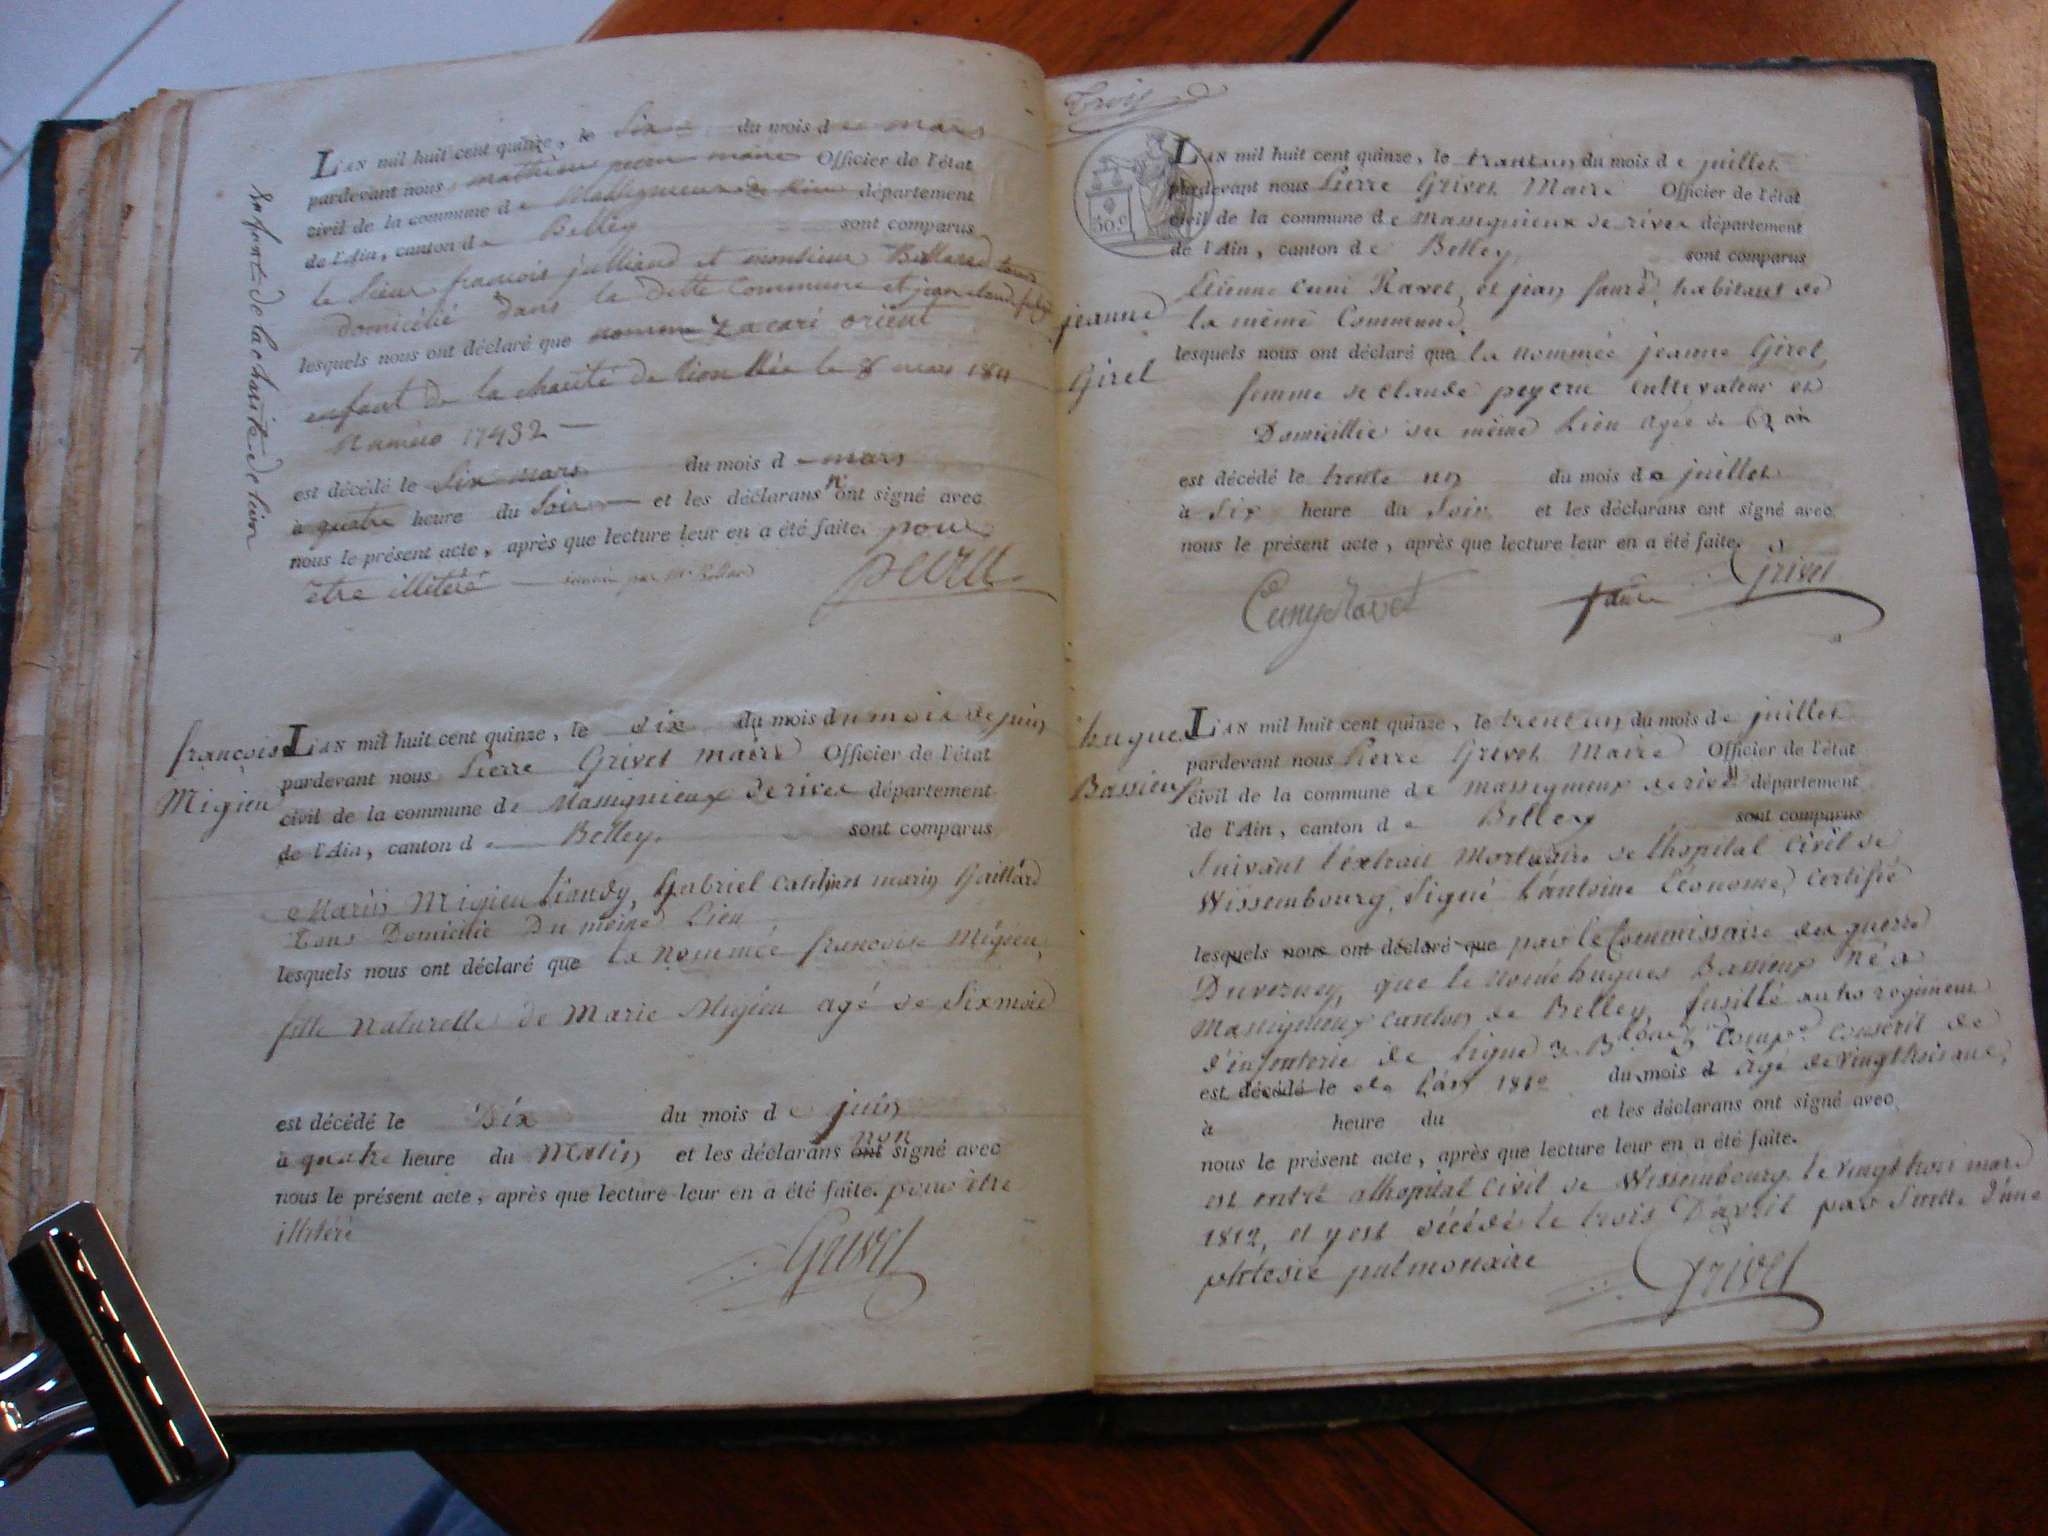 enfant de la charité de lion
L'AN mil huit cent quinze, le Six du mois de mars
pardevant nous mathieu maire Officier de l'état
civil de la commune de Massignieux de rive département
de l'Ain, canton de Belley sont comparus
le sieur francois julliand et monsieur Bollard tous
domicilié dans la Ditte Commune et jean claude
lesquels nous ont déclaré que nommé zacari orient
enfant de la charité de lion Née le 8 mars 1811
Numéro 17432
est décédé le Six mars du mois de mars
à quatre heure du Soir et les déclarans n'ont signé avec
nous le présent acte, après que lecture leur en a été faite. pour
être illiteré
françoise
Migieu
L'AN mil huit cent quinze, le dix du mois du mois de juin
pardevant nous Pierre Grivet maire Officier de l'état
civil de la commune de Massignieux de rives département
de l'Ain, canton de Belley. sont comparus
Marin Migieu tiandy, Gabriel catelinet marin Gaillard
Tous Domicilié Du même Lieu
lesquels nous ont déclaré que la nommée francoise Migieu,
fille naturelle de Marie Migieu agé de Six mois
est décédé le Dix du mois de juin
à quatre heure du Matin et les déclarans ont non signé avec
nous le présent acte, après que lecture leur en a été faite. pour être
illitéré
Grivet
Trois
30 c
jeanne
Girel
L'AN mil huit cent quinze, le trantun du mois de juillet
pardevant nous Pierre Grivet Maire Officier de l'état
civil de la commune de Massignieux de rives département
de l'Ain, canton de Belley, sont comparus
Etienne cuni Ravet, et jean faure, habitant de
la même Commune,
lesquels nous ont déclaré que la nommée jeanne Girel,
femme de claude peycru cultivateur et
Domicilliée du même Lieu agée de 62 an
est décédé le trente un du mois de juillet
à Six heure du Soir et les déclarans ont signé avec
nous le présent acte, après que lecture leur en a été faite.
Grivet
Cuny Ravet faure
hugues
Bassieux
L'AN mil huit cent quinze, le trent un du mois de juillet
pardevant nous Pierre Grivet Maire Officier de l'état
civil de la commune de massignieux de rives département
de l'Ain, canton de Belley sont comparus
Suivant l'éxtrait Mortuaire de l'hopital Civil de
Wissembourg, Signé Lantoine Econome, certifié
lesquels nous ont déclaré que par le Commissaire des guerre
Duverney, que le nomé hugues Bassieux né a
Massignieux canton de Belley, fusillé au regiment
d'infanterie de Ligne 3e Conscrit de
est décédé le de L'an 1812 du mois d Agé de vingt trois ans,
à heure du et les déclarans ont signé avec
nous le présent acte, après que lecture leur en a été faite.
est entré a l'hopital Civil de Wissembourg le vingt trois mars
1812, et y est décédé le trois D'avril par Suitte d'une
phtesie pulmonaire
Grivet